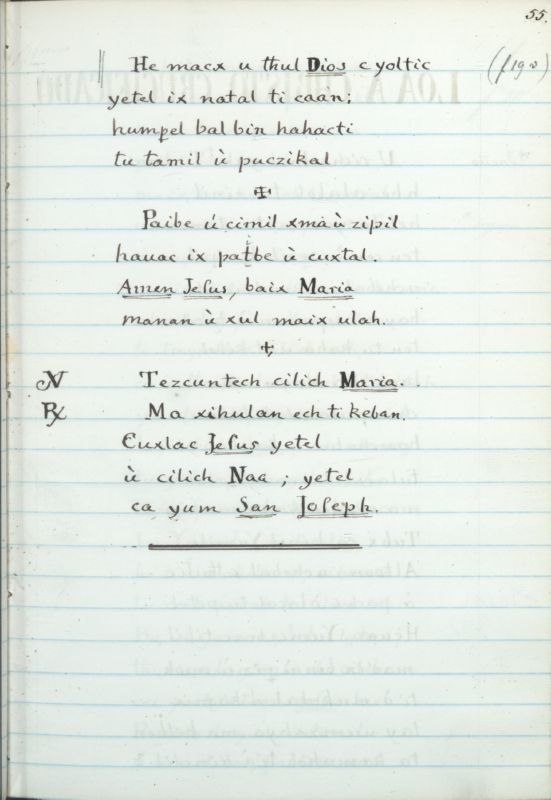 55.
He macx u thul Dios c yoltic
yetel ix natal ti caan;
humpel bal bin hahacti
tu tamil ù puczikal
Paibe ú cimil xmà ù zipil
hauac ix patbe ù cuxtal.
Amen Jesus, baix Maria
manan ù xul maix ulah.
Tezcuntech cilich Maria.
Ma xihulan ech ti keban.
Cuxlac Jesus yetel
ù cilich Naa; yetel
ca yum San Joseph.